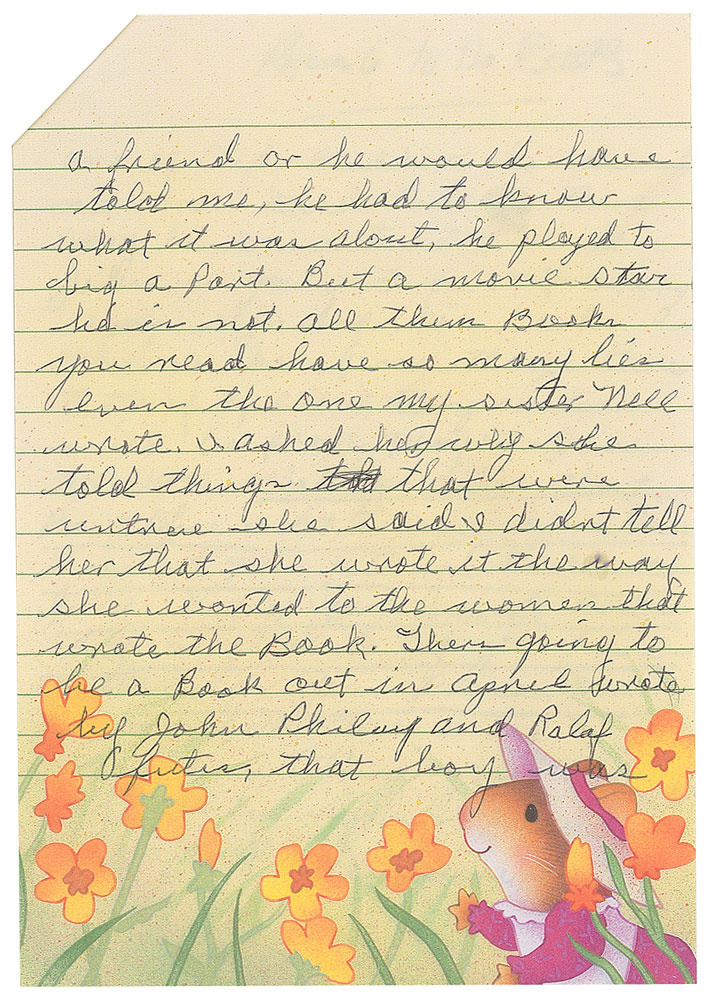 a friend or he would have
told me, he had to know
what it was about, he played to
big a Part. But a movie star
he is not. all them Books
you read have so many lies
even the one my sister Nell
wrote. I asked her why she
told things that were
untrue she said I didnt tell
her that she wrote it the way
she wanted to the women that
wrote the Book. Thers going to
be a Book out in April wrote
by John Philay and Ralf
that boy was